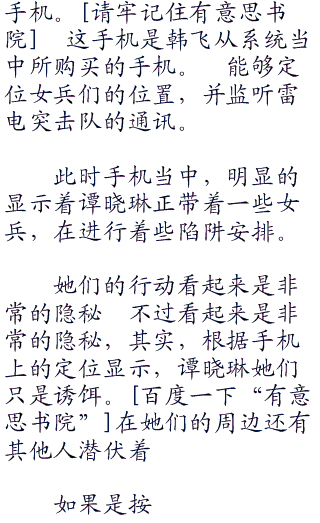 手机。[请牢记住有意思书
院]　这手机是韩飞从系统当
中所购买的手机。　能够定
位女兵们的位置，并监听雷
电突击队的通讯。
此时手机当中，明显的
显示着谭晓琳正带着一些女
兵，在进行着些陷阱安排。
她们的行动看起来是非
常的隐秘　不过看起来是非
常的隐秘，其实，根据手机
上的定位显示，谭晓琳她们
只是诱饵。[百度一下“有意
思书院”]在她们的周边还有
其他人潜伏着
如果是按